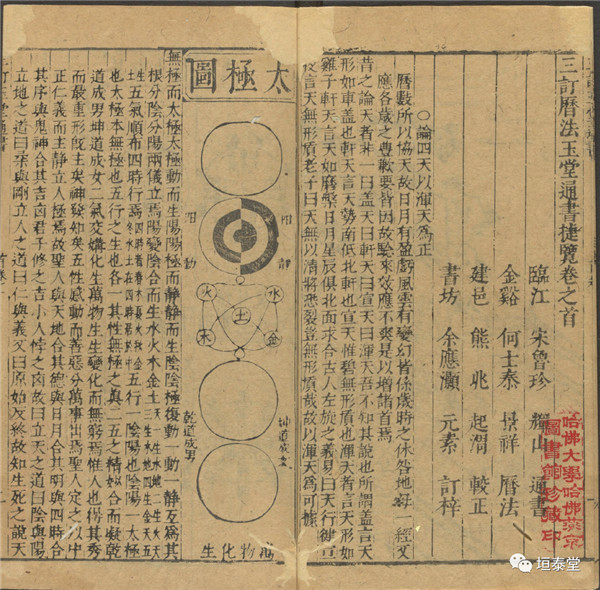 三訂曆法玉堂通書捷覽卷之首
臨江 宋魯珍 輝山 通書
金谿 何士泰 景祥 曆法
建邑 熊兆 起潤 較正
書坊 余應灝 元素 訂梓
○論四天以渾天爲正
曆數所以協天故日月有盈虧風雲有變幻皆係歲時之休咎地 一經交
應各歲之豐歉要皆因故驗來效應不爽是以增諸首焉
昔之論天者非一曰蓋天曰軒天曰宣天曰渾天吾不知其說也所謂蓋言天
形如車蓋也軒天言天勢南低北軒也宣天惟碧無形質也渾天者言天形如
雞子軒天言天如磨磐日月星辰俱北而求合古人左旋之義易曰天行健豈
言天無形質老子曰天無以清將恐裂豈無形質哉故以渾天爲可據
哈佛大學哈佛燕京
圖書館珍藏印
太極圖
陽動
陰靜
火
水
土
木
金
坤道成女
乾道成男
萬物化生
無極而太極太極動而生陽陽極而靜靜而生陰陰極復動一動一靜互爲其
根分陰分陽兩儀立焉陽變陰合而生水火木金土
五氣順布四時行焉 五行一陰陽也陰陽一太極
也太極本無極也五行之生也各一其性無極之真二五之精妙合而凝乾
道成男坤道成女二氣交媾化生萬物生生變化而無窮焉惟人也得其秀
而最重形旣生矣神發知矣五性感動而善惡分萬事出焉聖人定之以中
正仁義而主靜立人極焉故聖人與天地合其德與日月合其明與四時合
其序與鬼神合其吉凶君子修之吉小人悖之凶故曰立天之道曰陰與陽
立地之道曰柔與剛立人之道曰仁與義又曰原始反終故知生死之說天
三訂玉堂通書
垣泰堂